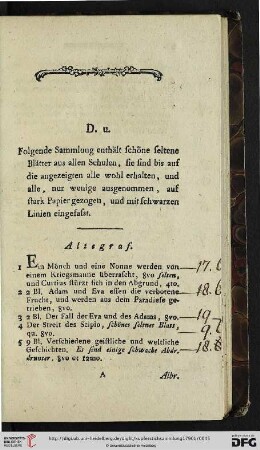 D. u.
Folgende Sammlung enthält schöne seltene
Blätter aus allen Schulen, sie sind bis auf
die angezeigten alle wohl erhalten, und
alle, nur wenige ausgenommen, auf
stark Papier gezogen, und mit schwarzen
Linien eingefasst.
Altegraf.
1 Ein Mönch und eine Nonne werden von 17.6
einem Kriegsmanne überrascht, 8vo selten,
und Curtius stürzt sich in den Abgrund, 4to.
2 2 Bl. Adam und Eva essen die verbotene 18.6
Frucht, und werden aus dem Paradiese ge-
trieben, 8vo.
3 2 Bl. Der Fall der Eva und des Adams, 8vo 19
4 Der Streit des Scipio, schönes seltenes Blatt,
qu. 8vo.
5 9 Bl. Verschiedene geistliche und weltliche
Geschichten, Es sind einige schwache Abdr.
drunter, 8vo et 12mo.
A Albr.
UNIVERSITÄTS-
BIBLIOTHEK
HEIDELBERG
Gefördert durch die
DFG